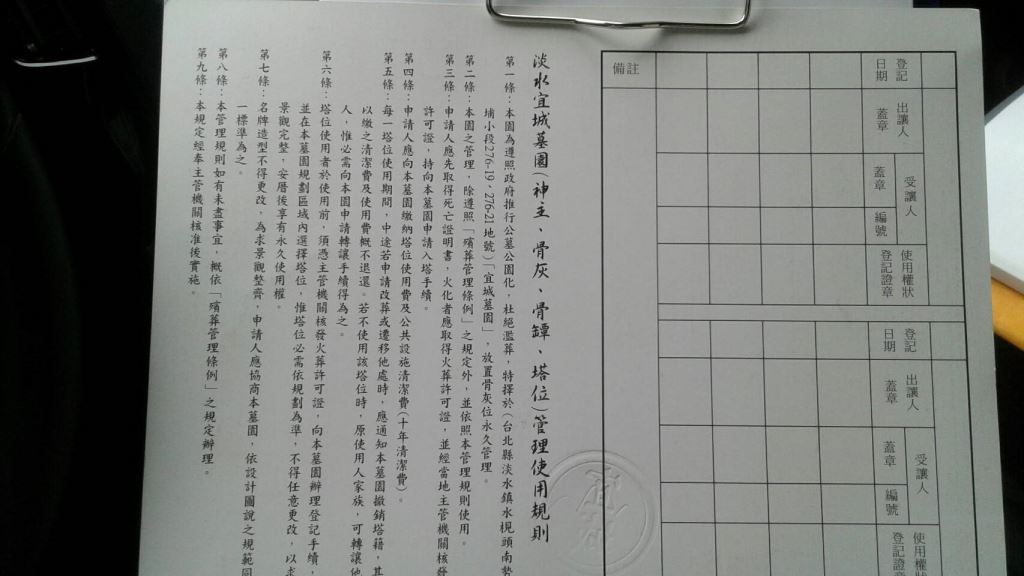 登記
日期
出讓人
蓋章
受讓人
蓋章
編號
使用權狀
登記證章
備註
登記
日期
出讓人
蓋章
受讓人
蓋章
編號
使用權狀
登記證章
淡水宜城墓園(神主、骨灰、骨罈、塔位)管理使用規則
第一條：本園為遵照政府推行公墓公園化，杜絕濫葬，特擇於(台北縣淡水鎮水梘頭南勢
埔小段276-19、276-21地號)「宜城墓園」，放置骨灰位永久管理。
第二條：本園之管理，除遵照「殯葬管理條例」之規定外，並依照本管理規則使用。
第三條：申請人應先取得死亡證明書，火化者應取得火葬許可證，並經當地主管機關核發
許可證，持向本墓園申請入塔手續。
第四條：申請人應向本墓園繳納塔位使用費及公共設施清潔費(十年清潔費)。
第五條：每一塔位使用期間，中途若申請改葬或遷移他處時，應通知本墓園撤銷塔籍，其
以繳之清潔費及使用費概不退還。若不使用該塔位時，原使用人家族，可轉讓他
人，惟必需向本園申請轉讓手續得為之。
第六條：塔位使用者於使用前，須憑主管機關核發火葬許可證，向本墓園辦理登記手續，
並在本墓園規劃區域內選擇塔位，惟塔位必需依規劃為準，不得任意更改，以求
景觀完整，安厝後享有永久使用權。
第七條：名牌造型不得更改，為求景觀整齊，申請人應協商本墓園，依設計圖說之規範同
一標準為之。
第八條：本管理規則如有未盡事宜，概依「殯葬管理條例」之規定辦理。
第九條：本規定經奉主管機關核准後實施。